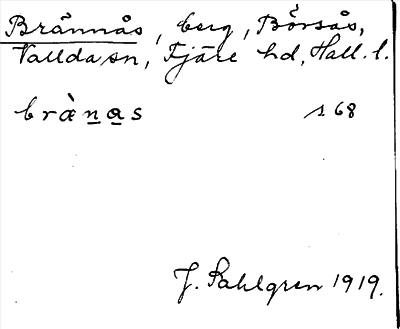 Brännås, berg, Börsås,
Vallda sn, Fjäre hd, Hall. l.
brànas s 68
J. Sahlgren 1919.